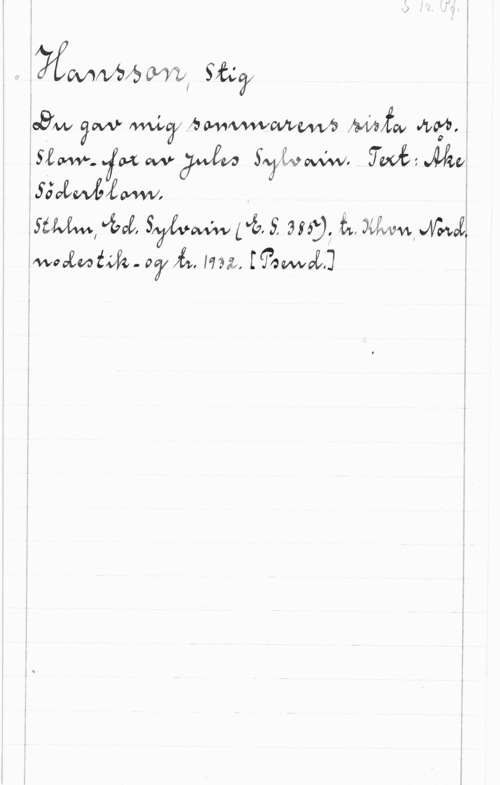 S Tr. Pf.
Hansson, Stig
Du gav mig sommarens sista ros.
Slow-fox av Jules Sylvain. Text: Åke
Söderblom.
Sthlm, Ed. Sylvain (E. S. 385), tr. Khvn, Nord.
nodestik- og tr. 1932. [Pseud.]